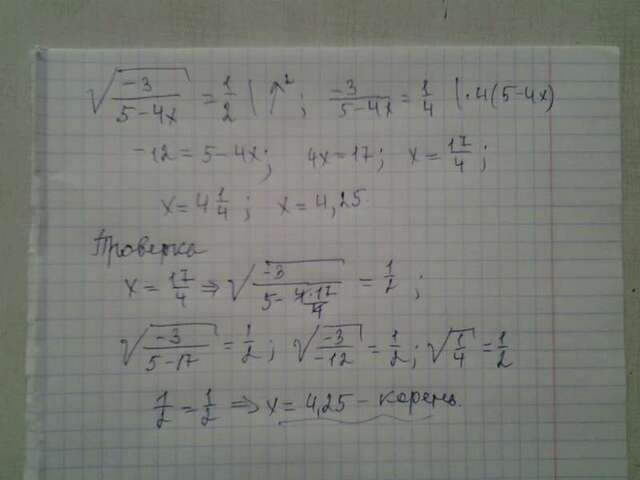 √(-3/(5-4x)) = 1/2 | ↑²; -3/(5-4x) = 1/4 | · 4(5-4x)
-12 = 5-4x; 4x = 17; x = 17/4;
x = 4 1/4; x = 4,25.
Проверка
x = 17/4 ⇒ √(-3/(5-4·17/4)) = 1/2;
√(-3/(5-17)) = 1/2; √(-3/-12) = 1/2; √(1/4) = 1/2
1/2 = 1/2 ⇒ x = 4,25 – корень.